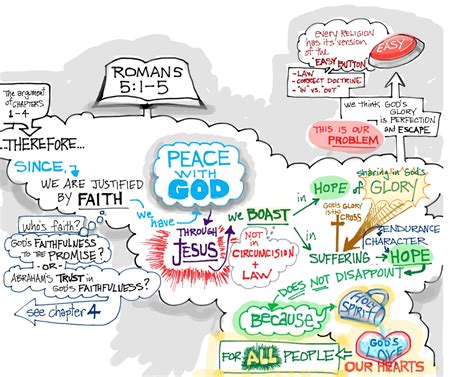 ROMANS
5:1-5
EVERY RELIGION
HAS ITS VERSION
OF THE
"EASY BUTTON"
EASY
- LAW
- CORRECT DOCTRINE
- "IN" VS. "OUT"
The argument
of CHAPTERS
1-4
we think GOD'S
GLORY
is PERFECTION
and ESCAPE
THIS IS OUR
PROBLEM
...THEREFORE...
SINCE,
WE ARE JUSTIFIED
BY FAITH
who's faith?
GOD'S FAITHFULNESS
TO THE PROMISE?
-OR-
ABRAHAM'S TRUST in
GOD'S FAITHFULNESS?
see chapter 4
we
HAVE
PEACE
WITH
GOD
THROUGH
JESUS
we BOAST
NOT
in
CIRCUMCISION
+
LAW
in
HOPE of
sharing in God's
GLORY
GOD'S GLORY
is the
CROSS
in
SUFFERING
ENDURANCE
CHARACTER
HOPE
DOES NOT DISAPPOINT
Because
HOLY
SPIRIT
GOD'S
LOVE
OUR HEARTS
FOR ALL PEOPLE